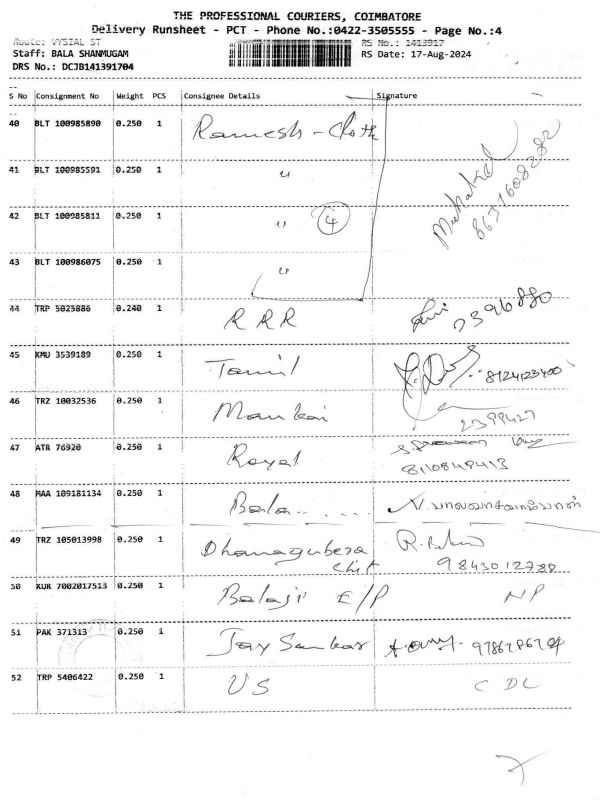 THE PROFESSIONAL COURIERS, COIMBATORE
Delivery Runsheet - PCT - Phone No.:0422-3505555 - Page No.:4
Route: VYSIAL ST RS No.: 1413917
Staff: BALA SHANMUGAM RS Date: 17-Aug-2024
DRS No.: DCJB141391704
S No Consignment No Weight PCS Consignee Details Signature
40 BLT 100985890 0.250 1 Ramesh - Cloth
41 BLT 100985591 0.250 1 "
42 BLT 100985811 0.250 1 " 4
8671608282
43 BLT 100986075 0.250 1 "
44 TRP 5025886 0.240 1 RRR
45 KMU 3539189 0.250 1 Tamil 8124123400
46 TRZ 10032536 0.250 1 Mankai 2399427
47 ATR 76920 0.250 1 Royal
8110848413
48 MAA 109181134 0.250 1 Bala.....
49 TRZ 105013998 0.250 1 Dhanagubera
Chit 9843012738
50 KUR 7002017513 0.250 1 Balaji E/P NP
51 PAK 371313 0.250 1 Jay Sankar
52 TRP 5406422 0.250 1 US CDL